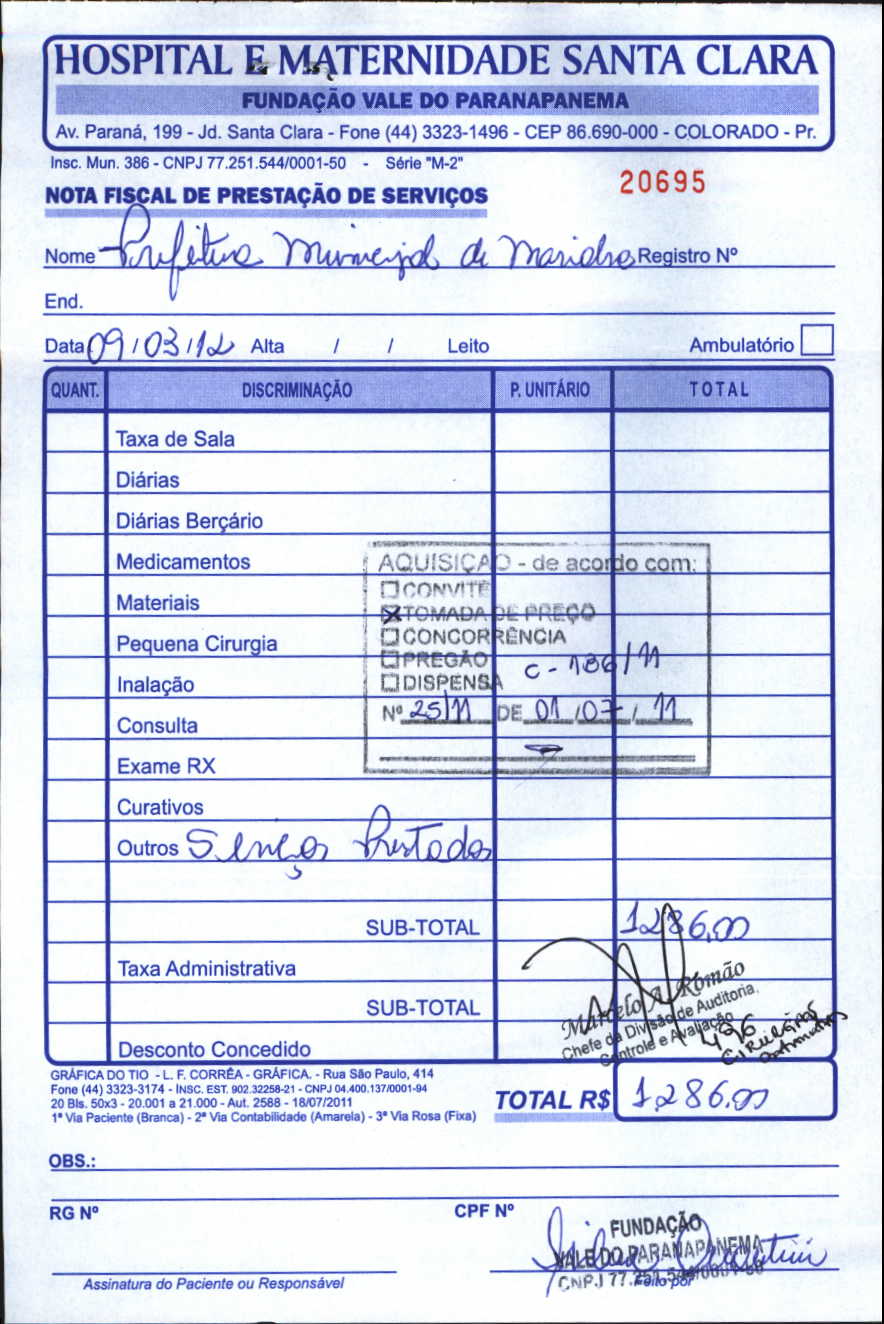 HOSPITAL E MATERNIDADE SANTA CLARA
FUNDAÇÃO VALE DO PARANAPANEMA
Av. Paraná, 199 - Jd. Santa Clara - Fone (44) 3323-1496 - CEP 86.690-000 - COLORADO - Pr.
Insc. Mun. 386 - CNPJ 77.251.544/0001-50 - Série "M-2"
20695
NOTA FISCAL DE PRESTAÇÃO DE SERVIÇOS
Nome Prefeitura Municipal de Registro Nº
End.
Data 09/03/12 Alta / / Leito Ambulatório
QUANT. DISCRIMINAÇÃO P. UNITÁRIO TOTAL
Taxa de Sala
Diárias
Diárias Berçário
Medicamentos
Materiais
Pequena Cirurgia
Inalação
Consulta
Exame RX
Curativos
Outros Serviços Prestados
AQUISIÇAO - de acordo com:
CONVITE
TOMADA DE PREÇO
CONCORRÊNCIA
PREGÃO
DISPENSA
C - 186/11
Nº 25/11 DE 01/07/11
SUB-TOTAL 1286,00
Taxa Administrativa
SUB-TOTAL
Desconto Concedido
Marcelo A. Romão
Chefe da Divisão de Auditoria,
Controle e Avaliação
496
TOTAL R$ 1,286,00
GRÁFICA DO TIO - L. F. CORRÊA - GRÁFICA. - Rua São Paulo, 414
Fone (44) 3323-3174 - INSC. EST. 902.32258-21 - CNPJ 04.400.137/0001-94
20 Bls. 50x3 - 20.001 a 21.000 - Aut. 2588 - 18/07/2011
1ª Via Paciente (Branca) - 2ª Via Contabilidade (Amarela) - 3ª Via Rosa (Fixa)
OBS.:
RG Nº CPF Nº
FUNDAÇÃO
VALE DO PARANAPANEMA
CNPJ 77.251.544/0001-50
Assinatura do Paciente ou Responsável Feito por